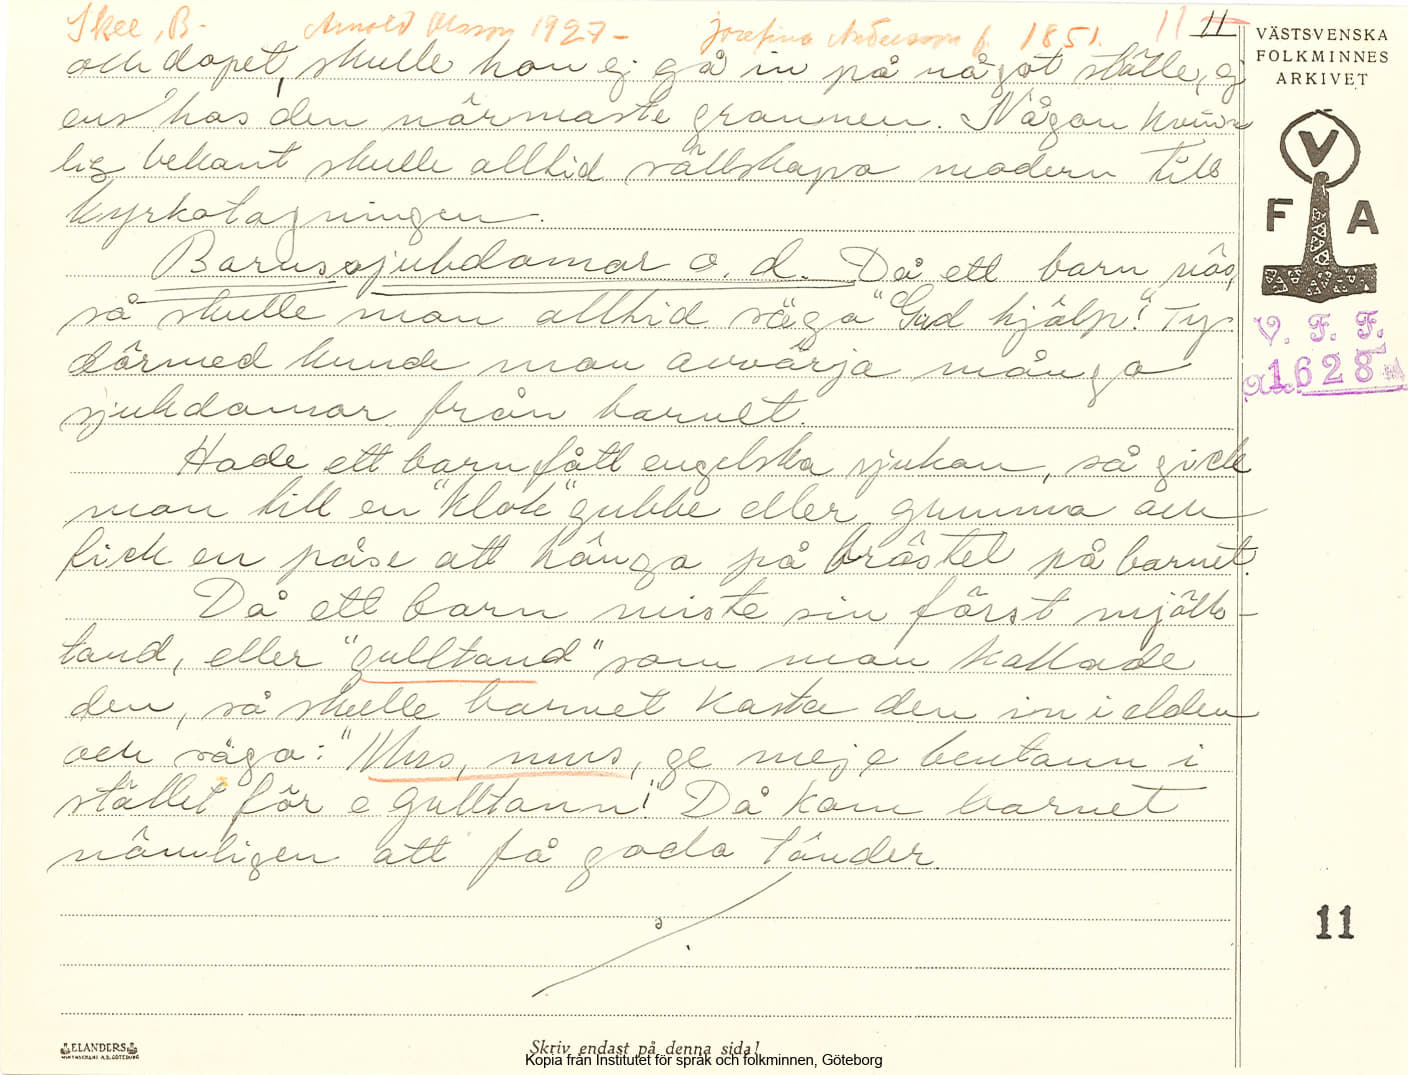 Skee, B. Arnold Olsson 1927 - Josefina Andersson f. 1851. 11 11
och dopet, skulle hon ej gå in på något ställe, ej
ens hos den närmaste grannen. Någon kvinn
lig bekant skulle alltid sällskapa modern till
kyrkotagningen.
Barnssjukdomar o. d. Då ett barn nös,
så skulle man alltid säga "Gud hjälp"! Ty
därmed kunde man avvärja många
sjukdomar från barnet.
Hade ett barn fått engelska sjukan, så gick
man till en "klok" gubbe eller gumma och
fick en påse att hänga på bröstet på barnet.
Då ett barn miste sin först mjölk-
tand, eller "gulltand" som man kallade
den, så skulle barnet kasta den in i elden
och säga: "Mus, mus, ge mej e bentann i
stället för e gulltann"! Då kom barnet
nämligen att få goda tänder.
VÄSTSVENSKA
FOLKMINNES
ARKIVET
V
F A
V. F. F.
1628
11
ELANDERS
Skriv endast på denna sida!
Kopia från Institutet för språk och folkminnen, Göteborg